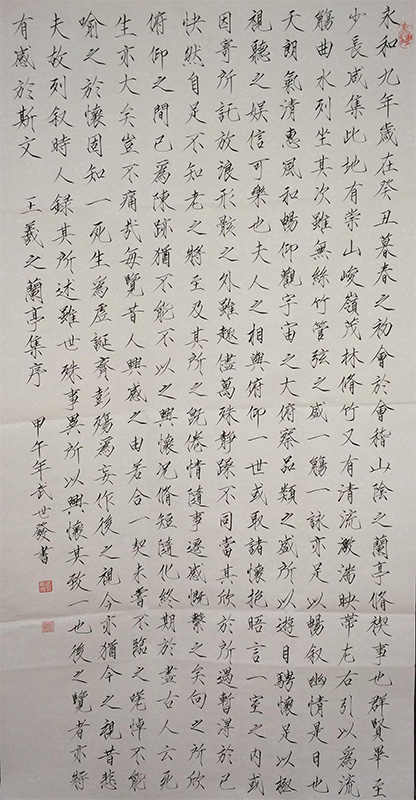 永和九年歲在癸丑暮春之初會於會稽山陰之蘭亭脩禊事也群賢畢至
少長咸集此地有崇山峻嶺茂林脩竹又有清流激湍映帶左右引以爲流
觴曲水列坐其次雖無絲竹管弦之盛一觴一詠亦足以暢叙幽情是日也
天朗氣清惠風和暢仰觀宇宙之大俯察品類之盛所以遊目騁懷足以極
視聽之娛信可樂也夫人之相與俯仰一世或取諸懷抱晤言一室之内或
因寄所託放浪形骸之外雖趣儘萬殊靜躁不同當其欣於所遇暫得於己
快然自足不知老之將至及其所之既倦情隨事遷感慨繫之矣向之所欣
俯仰之間已爲陳跡猶不能不以之興懷況脩短隨化終期於盡古人云死
生亦大矣豈不痛哉每覽昔人興感之由若合一契未嘗不臨之嗟悼不能
喻之於懷固知一死生爲虛誕齊彭殤爲妄作後之視今亦猶今之視昔悲
夫故列叙時人錄其所述雖世殊事異所以興懷其致一也後之覽者亦將
有感於斯文 王羲之蘭亭集序
甲午年武世發書